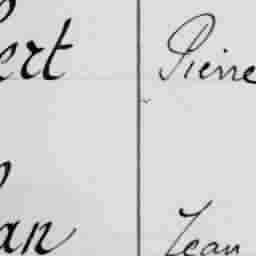 ert Pierre
an Jean